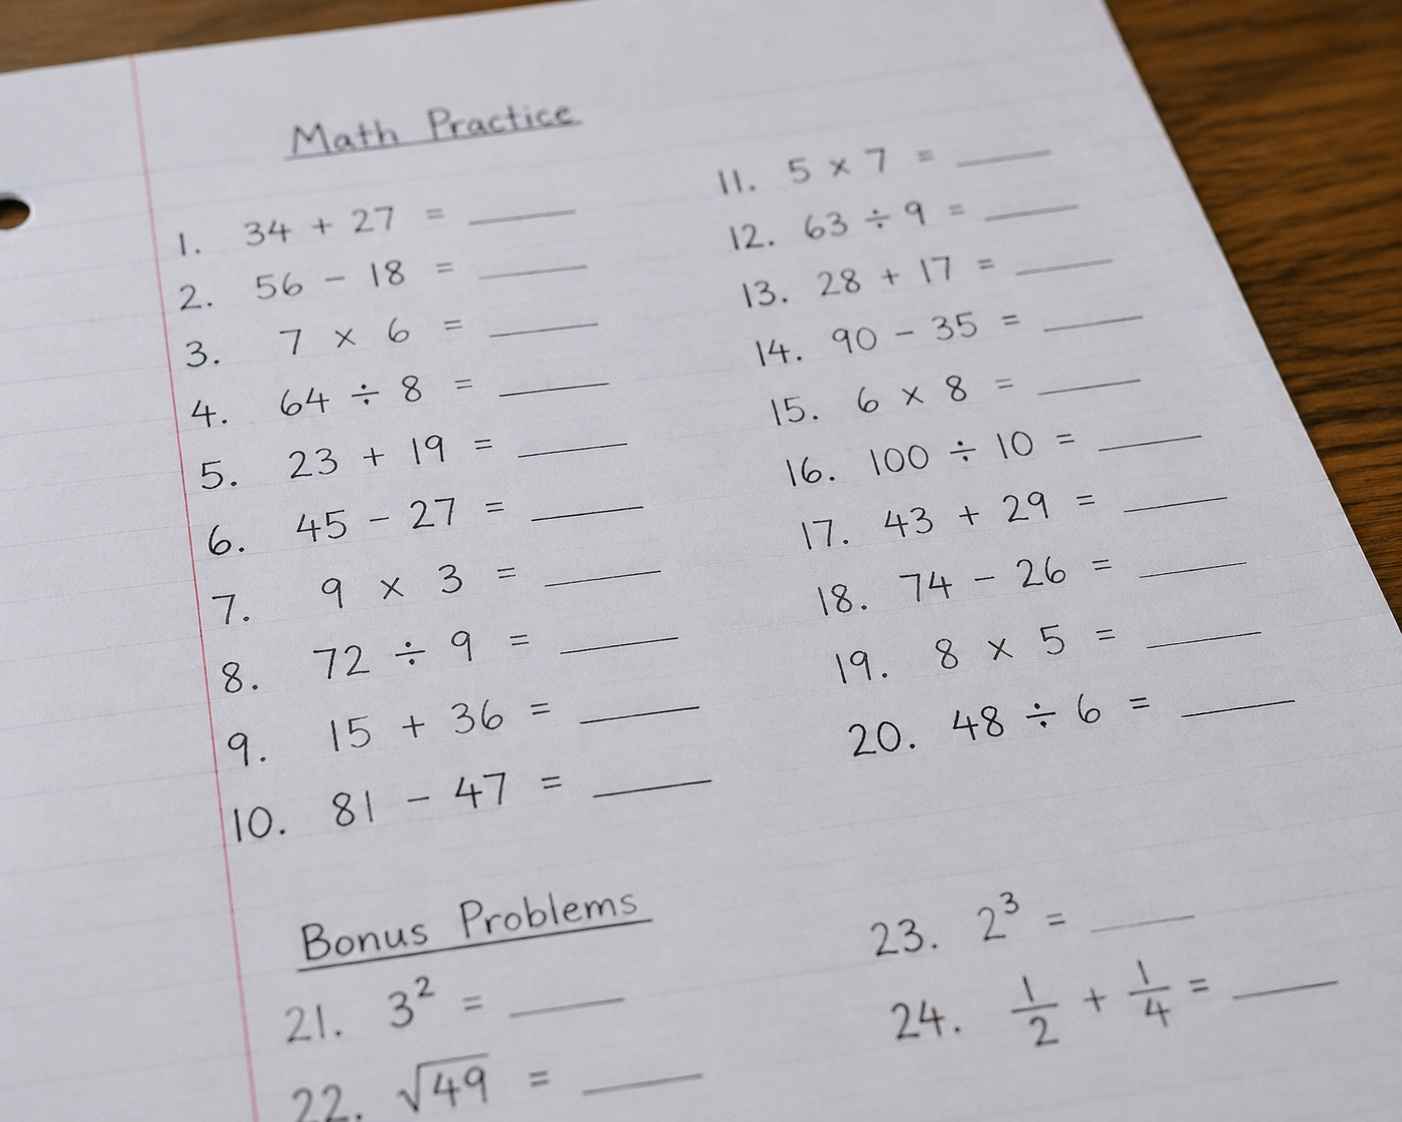 Math Practice
1. 34 + 27 = ____
2. 56 - 18 = ____
3. 7 × 6 = ____
4. 64 ÷ 8 = ____
5. 23 + 19 = ____
6. 45 - 27 = ____
7. 9 × 3 = ____
8. 72 ÷ 9 = ____
9. 15 + 36 = ____
10. 81 - 47 = ____
11. 5 × 7 = ____
12. 63 ÷ 9 = ____
13. 28 + 17 = ____
14. 90 - 35 = ____
15. 6 × 8 = ____
16. 100 ÷ 10 = ____
17. 43 + 29 = ____
18. 74 - 26 = ____
19. 8 × 5 = ____
20. 48 ÷ 6 = ____
Bonus Problems
21. 3² = ____
22. √49 = ____
23. 2³ = ____
24. 1/2 + 1/4 = ____